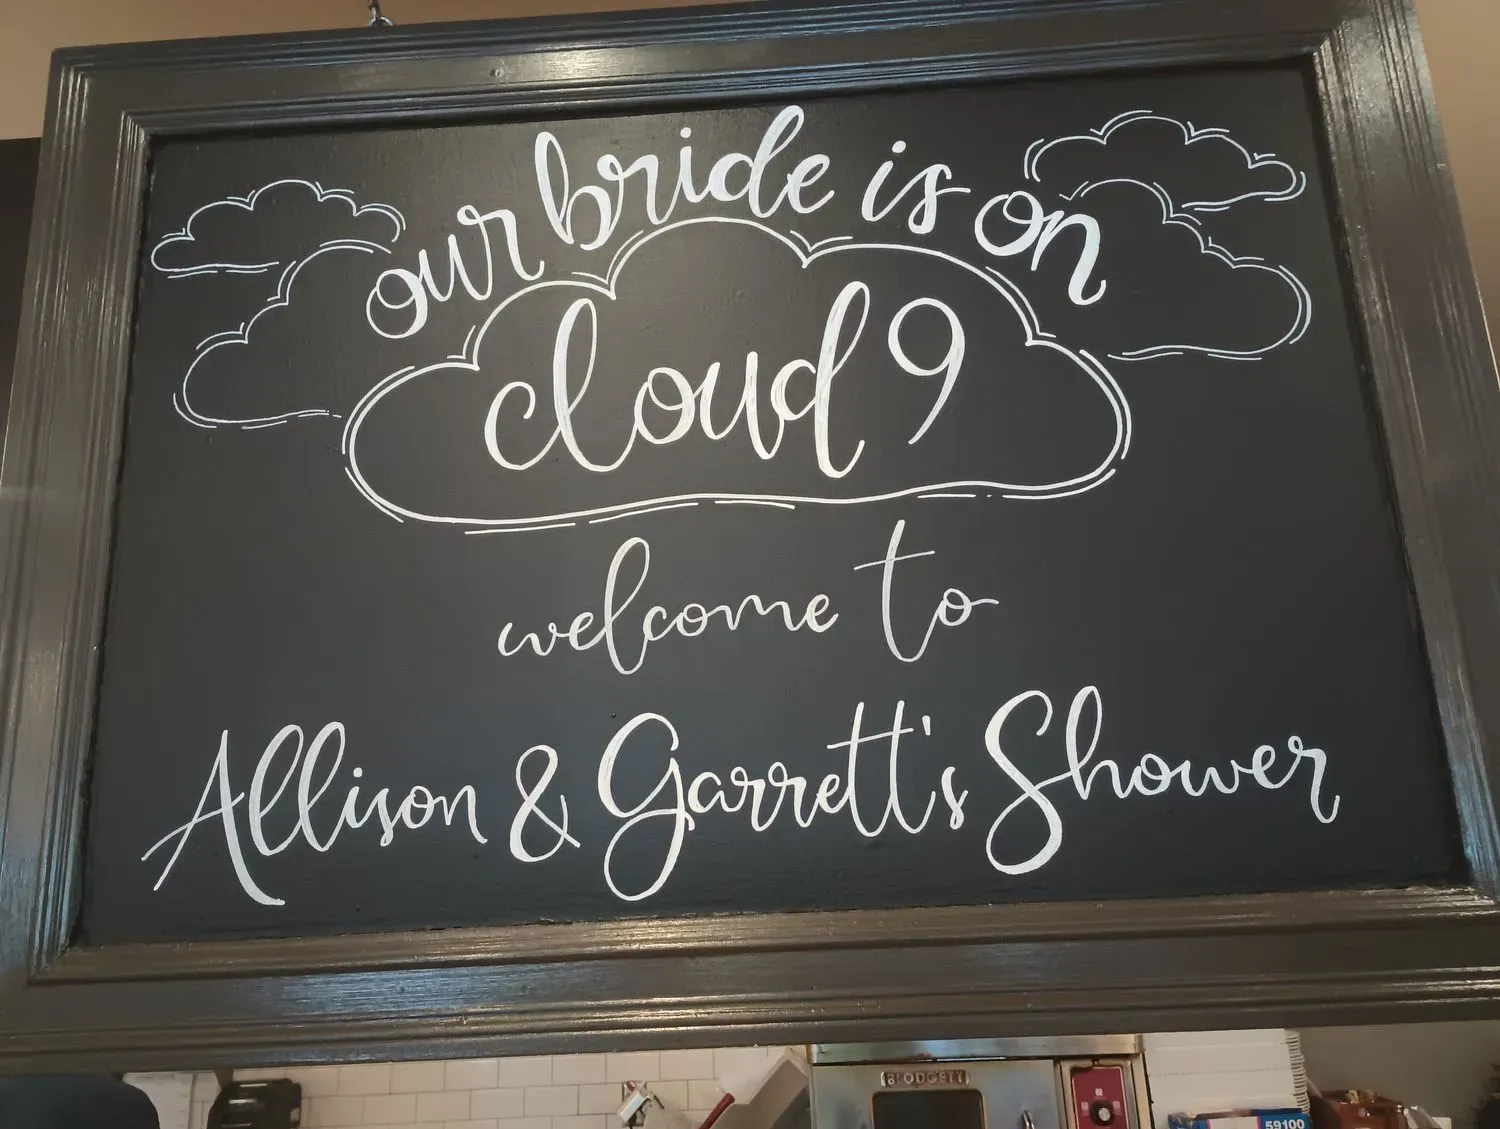 our bride is on
cloud 9
welcome to
Allison & Garrett's Shower
BLODGETT
59100